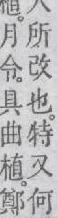 人所改也。特又何
植。月令。具曲植。鄭